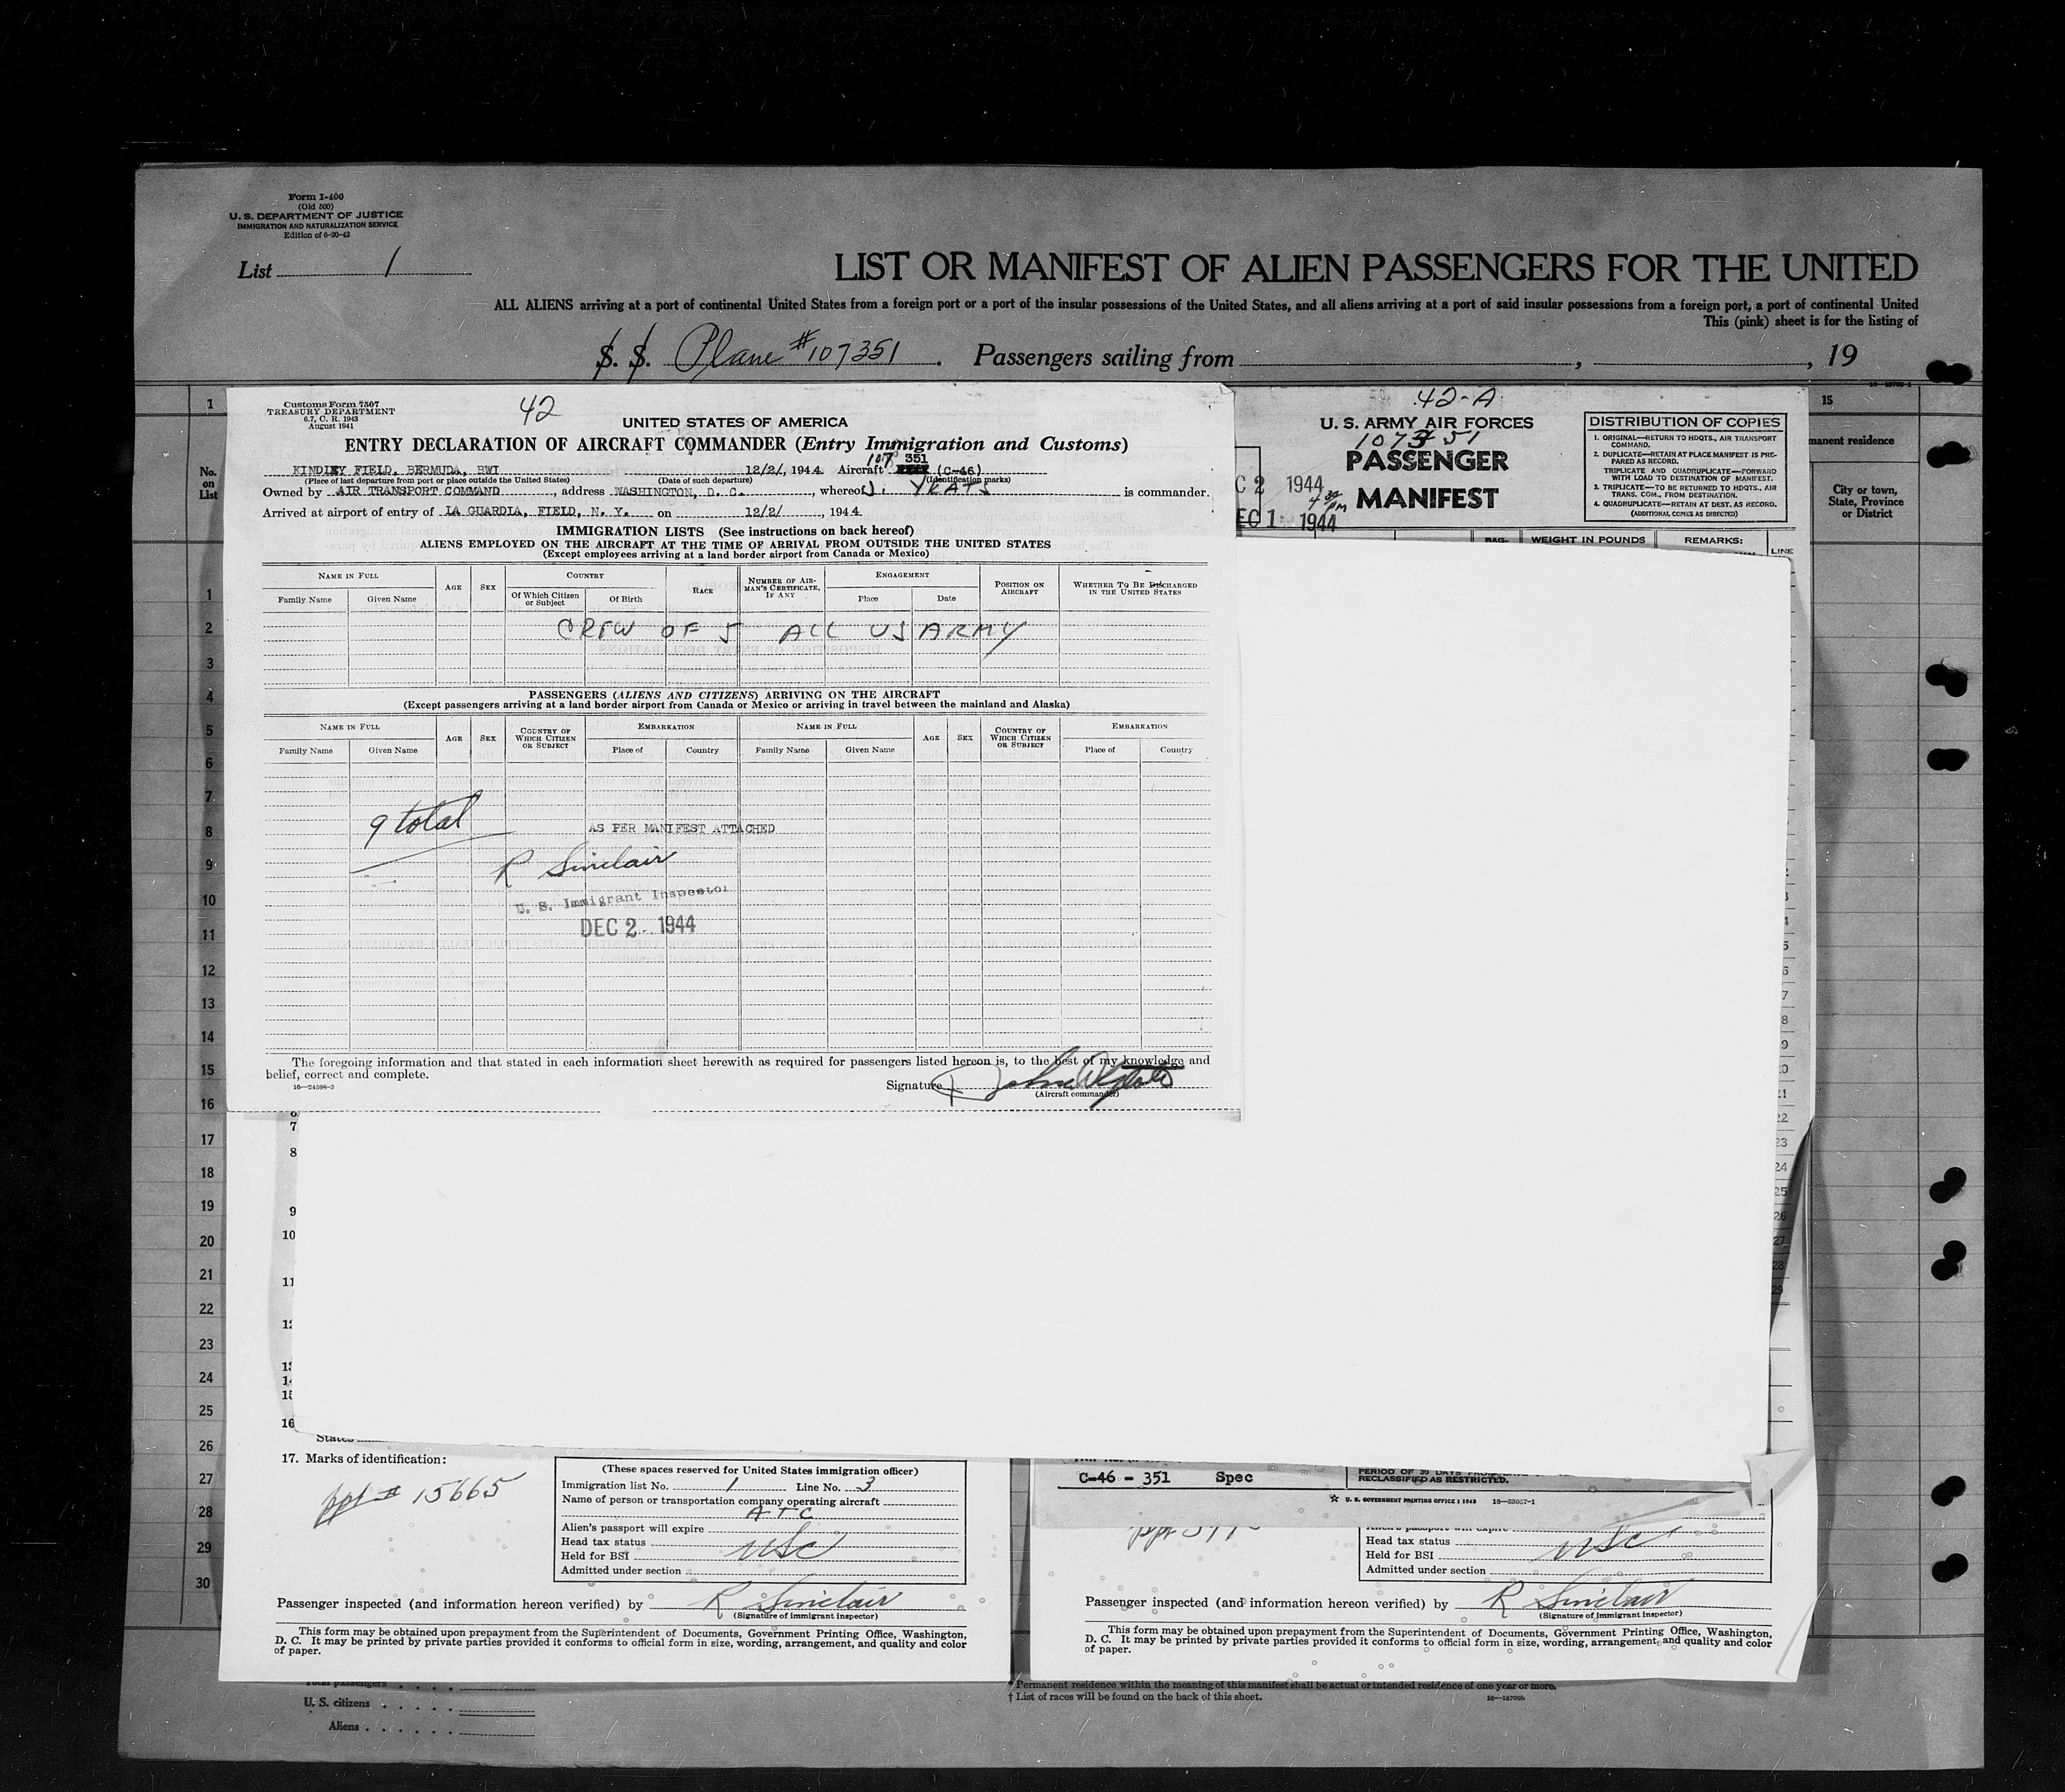 Form I-400
(Old 500)
U. S. DEPARTMENT OF JUSTICE
IMMIGRATION AND NATURALIZATION SERVICE
Edition of 6-20-42
List 1
LIST OR MANIFEST OF ALIEN PASSENGERS FOR THE UNITED
ALL ALIENS arriving at a port of continental United States from a foreign port or a port of the insular possessions of the United States, and all aliens arriving at a port of said insular possessions from a foreign port, a port of continental United
This (pink) sheet is for the listing of
S. S. Plane #107351. Passengers sailing from , , 19
1
No.
on
List
1
2
3
4
5
6
7
8
9
10
11
12
13
14
15
16
17
18
19
20
21
22
23
24
25
26
27
28
29
30
Customs Form 7507
TREASURY DEPARTMENT
6.7, C. R. 1943
August 1941
42
UNITED STATES OF AMERICA
ENTRY DECLARATION OF AIRCRAFT COMMANDER (Entry Immigration and Customs)
KINDLEY FIELD, BERMUDA, BWI 12/2/, 1944 Aircraft 107 351 (C-46)
(Place of last departure from port or place outside the United States) (Date of such departure) (Identification marks)
Owned by AIR TRANSPORT COMMAND, address WASHINGTON, D. C., whereof J. YEATS is commander.
Arrived at airport of entry of LA GUARDIA, FIELD, N. Y. on 12/2/, 1944
IMMIGRATION LISTS (See instructions on back hereof)
ALIENS EMPLOYED ON THE AIRCRAFT AT THE TIME OF ARRIVAL FROM OUTSIDE THE UNITED STATES
(Except employees arriving at a land border airport from Canada or Mexico)
NAME IN FULL AGE SEX COUNTRY RACE NUMBER OF AIRMAN'S CERTIFICATE, IF ANY ENGAGEMENT POSITION ON AIRCRAFT WHETHER TO BE DISCHARGED IN THE UNITED STATES
Family Name Given Name Of Which Citizen or Subject Of Birth Place Date
CREW OF 5 ALL US ARMY
PASSENGERS (ALIENS AND CITIZENS) ARRIVING ON THE AIRCRAFT
(Except passengers arriving at a land border airport from Canada or Mexico or arriving in travel between the mainland and Alaska)
NAME IN FULL AGE SEX COUNTRY OF WHICH CITIZEN OR SUBJECT EMBARKATION NAME IN FULL AGE SEX COUNTRY OF WHICH CITIZEN OR SUBJECT EMBARKATION
Family Name Given Name Place of Country Family Name Given Name Place of Country
9 total
AS PER MANIFEST ATTACHED
R Sinclair
U. S. Immigrant Inspector
DEC 2 1944
The foregoing information and that stated in each information sheet herewith as required for passengers listed hereon is, to the best of my knowledge and
belief, correct and complete.
16—24598-3
Signature
(Aircraft commander)
42-A
U. S. ARMY AIR FORCES
107351
PASSENGER
MANIFEST
C 2 1944
4 30 PM
EC 1 1944
DISTRIBUTION OF COPIES
1. ORIGINAL—RETURN TO HDQTS., AIR TRANSPORT
COMMAND.
2. DUPLICATE—RETAIN AT PLACE MANIFEST IS PRE-
PARED AS RECORD.
TRIPLICATE AND QUADRUPLICATE—FORWARD
WITH LOAD TO DESTINATION OF MANIFEST.
3. TRIPLICATE—TO BE RETURNED TO HDQTS., AIR
TRANS. COM., FROM DESTINATION.
4. QUADRUPLICATE—RETAIN AT DEST. AS RECORD.
(ADDITIONAL COPIES AS DIRECTED)
WEIGHT IN POUNDS REMARKS:
LINE
15
manent residence
City or town,
State, Province
or District
22
23
24
25
26
27
28
29
7
8
9
10
11
States
17. Marks of identification:
ppt # 15665
(These spaces reserved for United States immigration officer)
Immigration list No. 1 Line No. 3
Name of person or transportation company operating aircraft
ATC
Alien's passport will expire
Head tax status
Held for BSI USC
Admitted under section
Passenger inspected (and information hereon verified) by R Sinclair
(Signature of immigrant inspector)
This form may be obtained upon prepayment from the Superintendent of Documents, Government Printing Office, Washington,
D. C. It may be printed by private parties provided it conforms to official form in size, wording, arrangement, and quality and color
of paper.
C-46 - 351 Spec
RECLASSIFIED AS RESTRICTED.
U. S. GOVERNMENT PRINTING OFFICE : 1943 16—33057-1
Alien's passport will expire
Head tax status
Held for BSI USC
Admitted under section
Passenger inspected (and information hereon verified) by R Sinclair
(Signature of immigrant inspector)
This form may be obtained upon prepayment from the Superintendent of Documents, Government Printing Office, Washington,
D. C. It may be printed by private parties provided it conforms to official form in size, wording, arrangement, and quality and color
of paper.
Total passengers
U. S. citizens
Aliens
* Permanent residence within the meaning of this manifest shall be actual or intended residence of one year or more.
† List of races will be found on the back of this sheet.